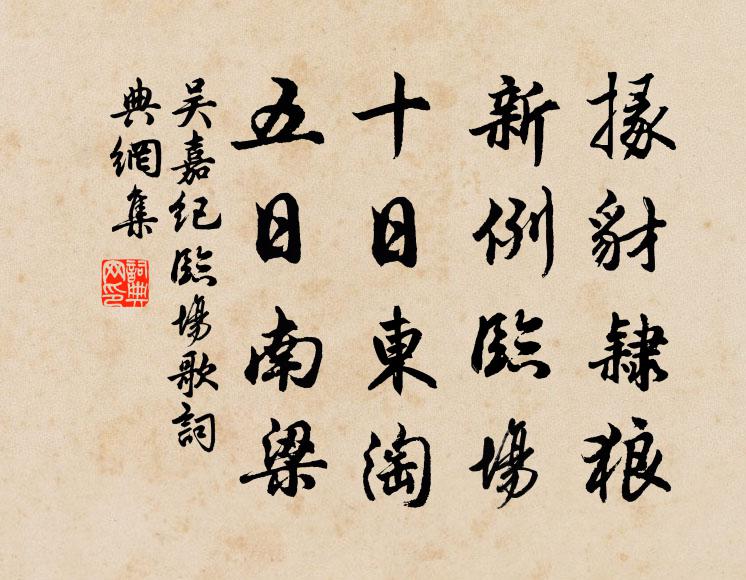 掾豺隸狼
新例臨場
十日東淘
五日南梁
吴嘉紀臨場歌詞
典網集
詞典
网印